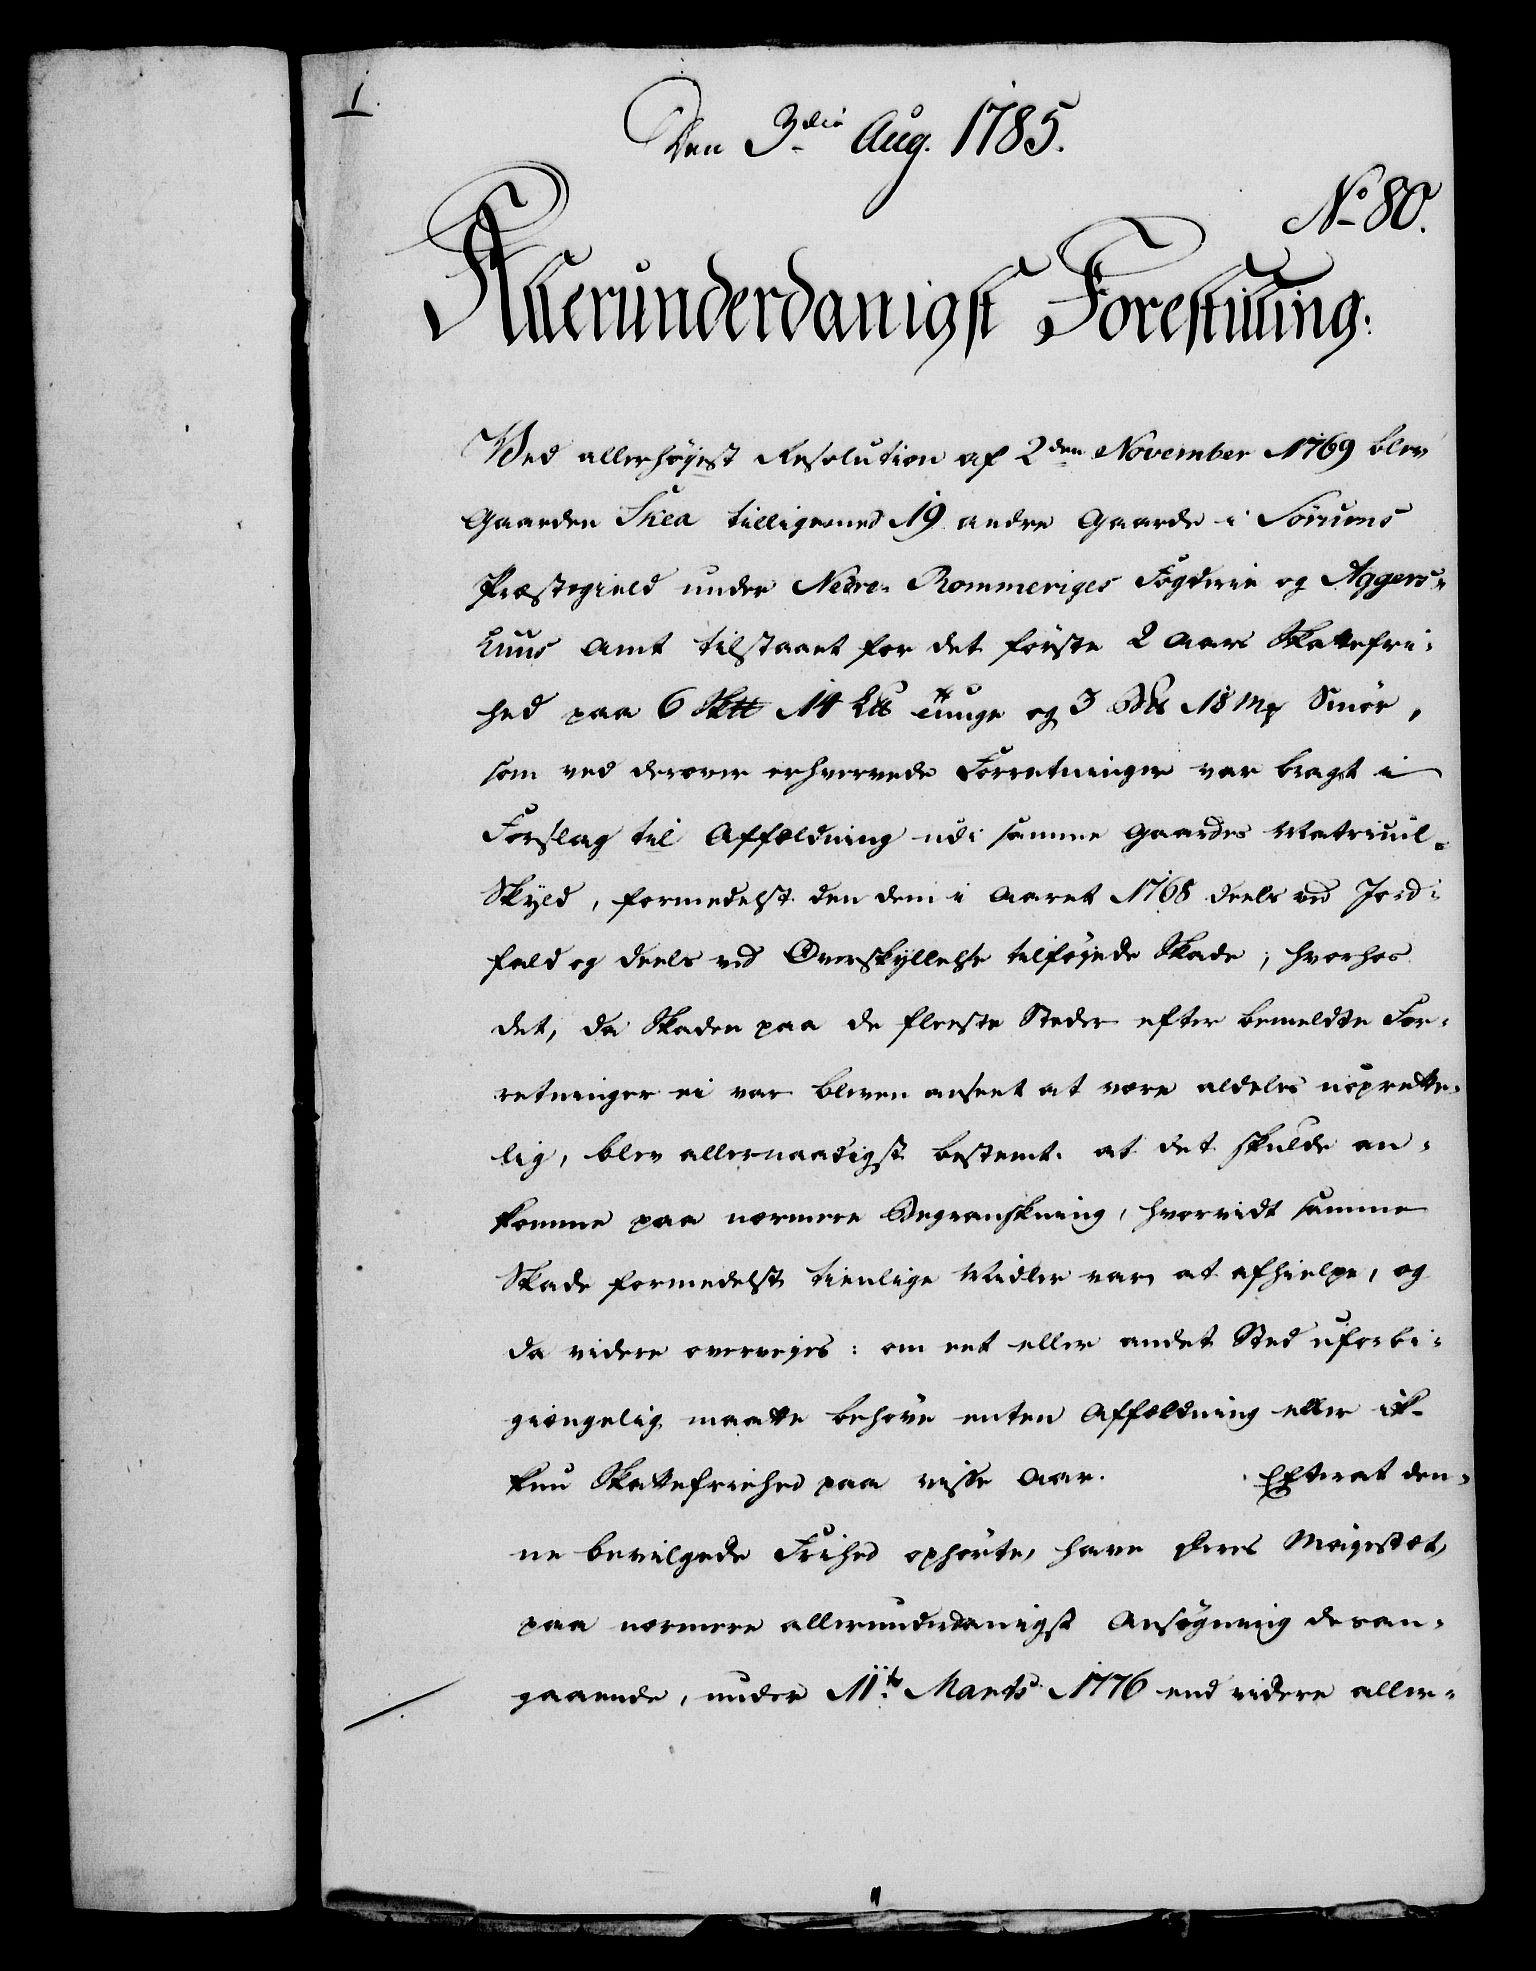 1.
Den 3die Aug. 1785.
No 80.
Allerunderdanigst Forestilling:
Ved allerhøyest Resolution af 2den November 1769 blev
Gaarden Skea tilligemed 19 andre Gaarde i Sørums
Præstegield under Nedre- Rommeriges Fogderie og Aggers-
huus Amt tilstaaet for det første 2 Aars Skattefri-
hed paa 6 Sk℔ 14 L℔ Tunge og 3 B℔ 18 Mk Smør,
som ved derover erhvervede Forretninger var bragt i
Forslag til Affældning udi samme Gaardes Matricul-
Skyld, formedelst den dem i Aaret 1768 deels ved Jord-
fald og deels ved Overskyllelse tilføyede Skade; hvorhos
det, da Skaden paa de fleeste Steder efter bemeldte For-
retninger ei var bleven anseet at være aldeles uoprette-
lig, blev allernaadigst bestemt: at det skulde an-
komme paa nærmere Begranskning, hvorvidt samme
Skade formedelst tienlige Midler var at afhielpe, og
da videre overveyes: om eet eller andet Sted uforbi-
giængelig maatte behøve enten Affældning eller ik-
kun Skattefriehed paa visse Aar. Efterat den-
ne bevilgede Friehed ophørte, have Deres Mayestæt,
paa nærmere allerunderdanigst Ansøgning desan-
gaaende, under 11te Marts 1776 end videre aller-